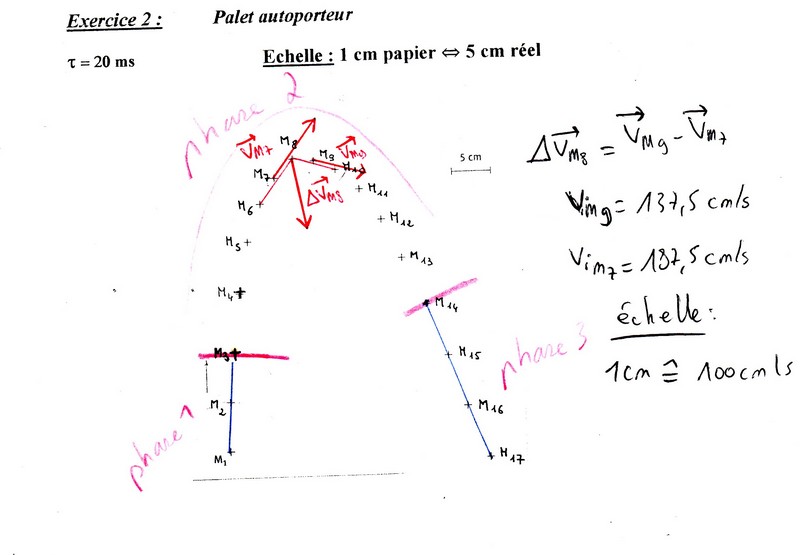 Exercice 2 : Palet autoporteur
τ = 20 ms
Echelle : 1 cm papier ⇔ 5 cm réel
phase 2
5 cm
V⃗M7
M8
M9
V⃗M9
M7
M10
M6
ΔV⃗M8
M11
M12
M5
M13
M4
M14
M3
M15
phase 3
M2
M16
phase 1
M1
M17
ΔV⃗M8 = V⃗M9 - V⃗M7
Vim9 = 137,5 cm/s
Vim7 = 187,5 cm/s
échelle :
1cm ≙ 100cm/s